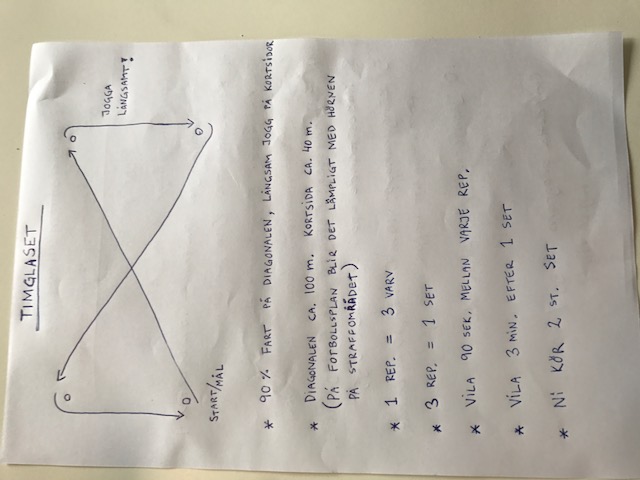 TIMGLASET
JOGGA
LÅNGSAMT!
START/
MÅL
* 90 % FART PÅ DIAGONALEN, LÅNGSAM JOGG PÅ KORTSIDOR
* DIAGONALEN CA. 100 m. KORTSIDA CA. 40 m.
(PÅ FOTBOLLSPLAN BLIR DET LÄMPLIGT MED HÖRNEN
PÅ STRAFFOMRÅDET)
* 1 REP. = 3 VARV
* 3 REP. = 1 SET
* VILA 90 SEK. MELLAN VARJE REP.
* VILA 3 MIN. EFTER 1 SET
* NI KÖR 2 ST. SET